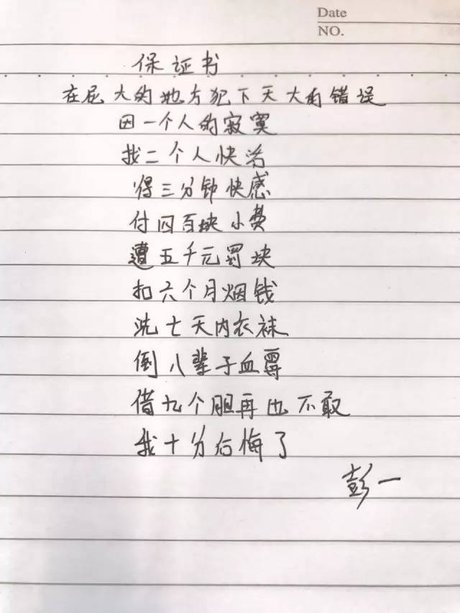 Date
NO.
保证书
在屁大的地方犯下天大的错误
因一个人的寂寞
找二个人快活
得三分钟快感
付四百块小费
遭五千元罚块
扣六个月烟钱
洗七天内衣袜
倒八辈子血霉
借九个胆再也不敢
我十分后悔了
彭一